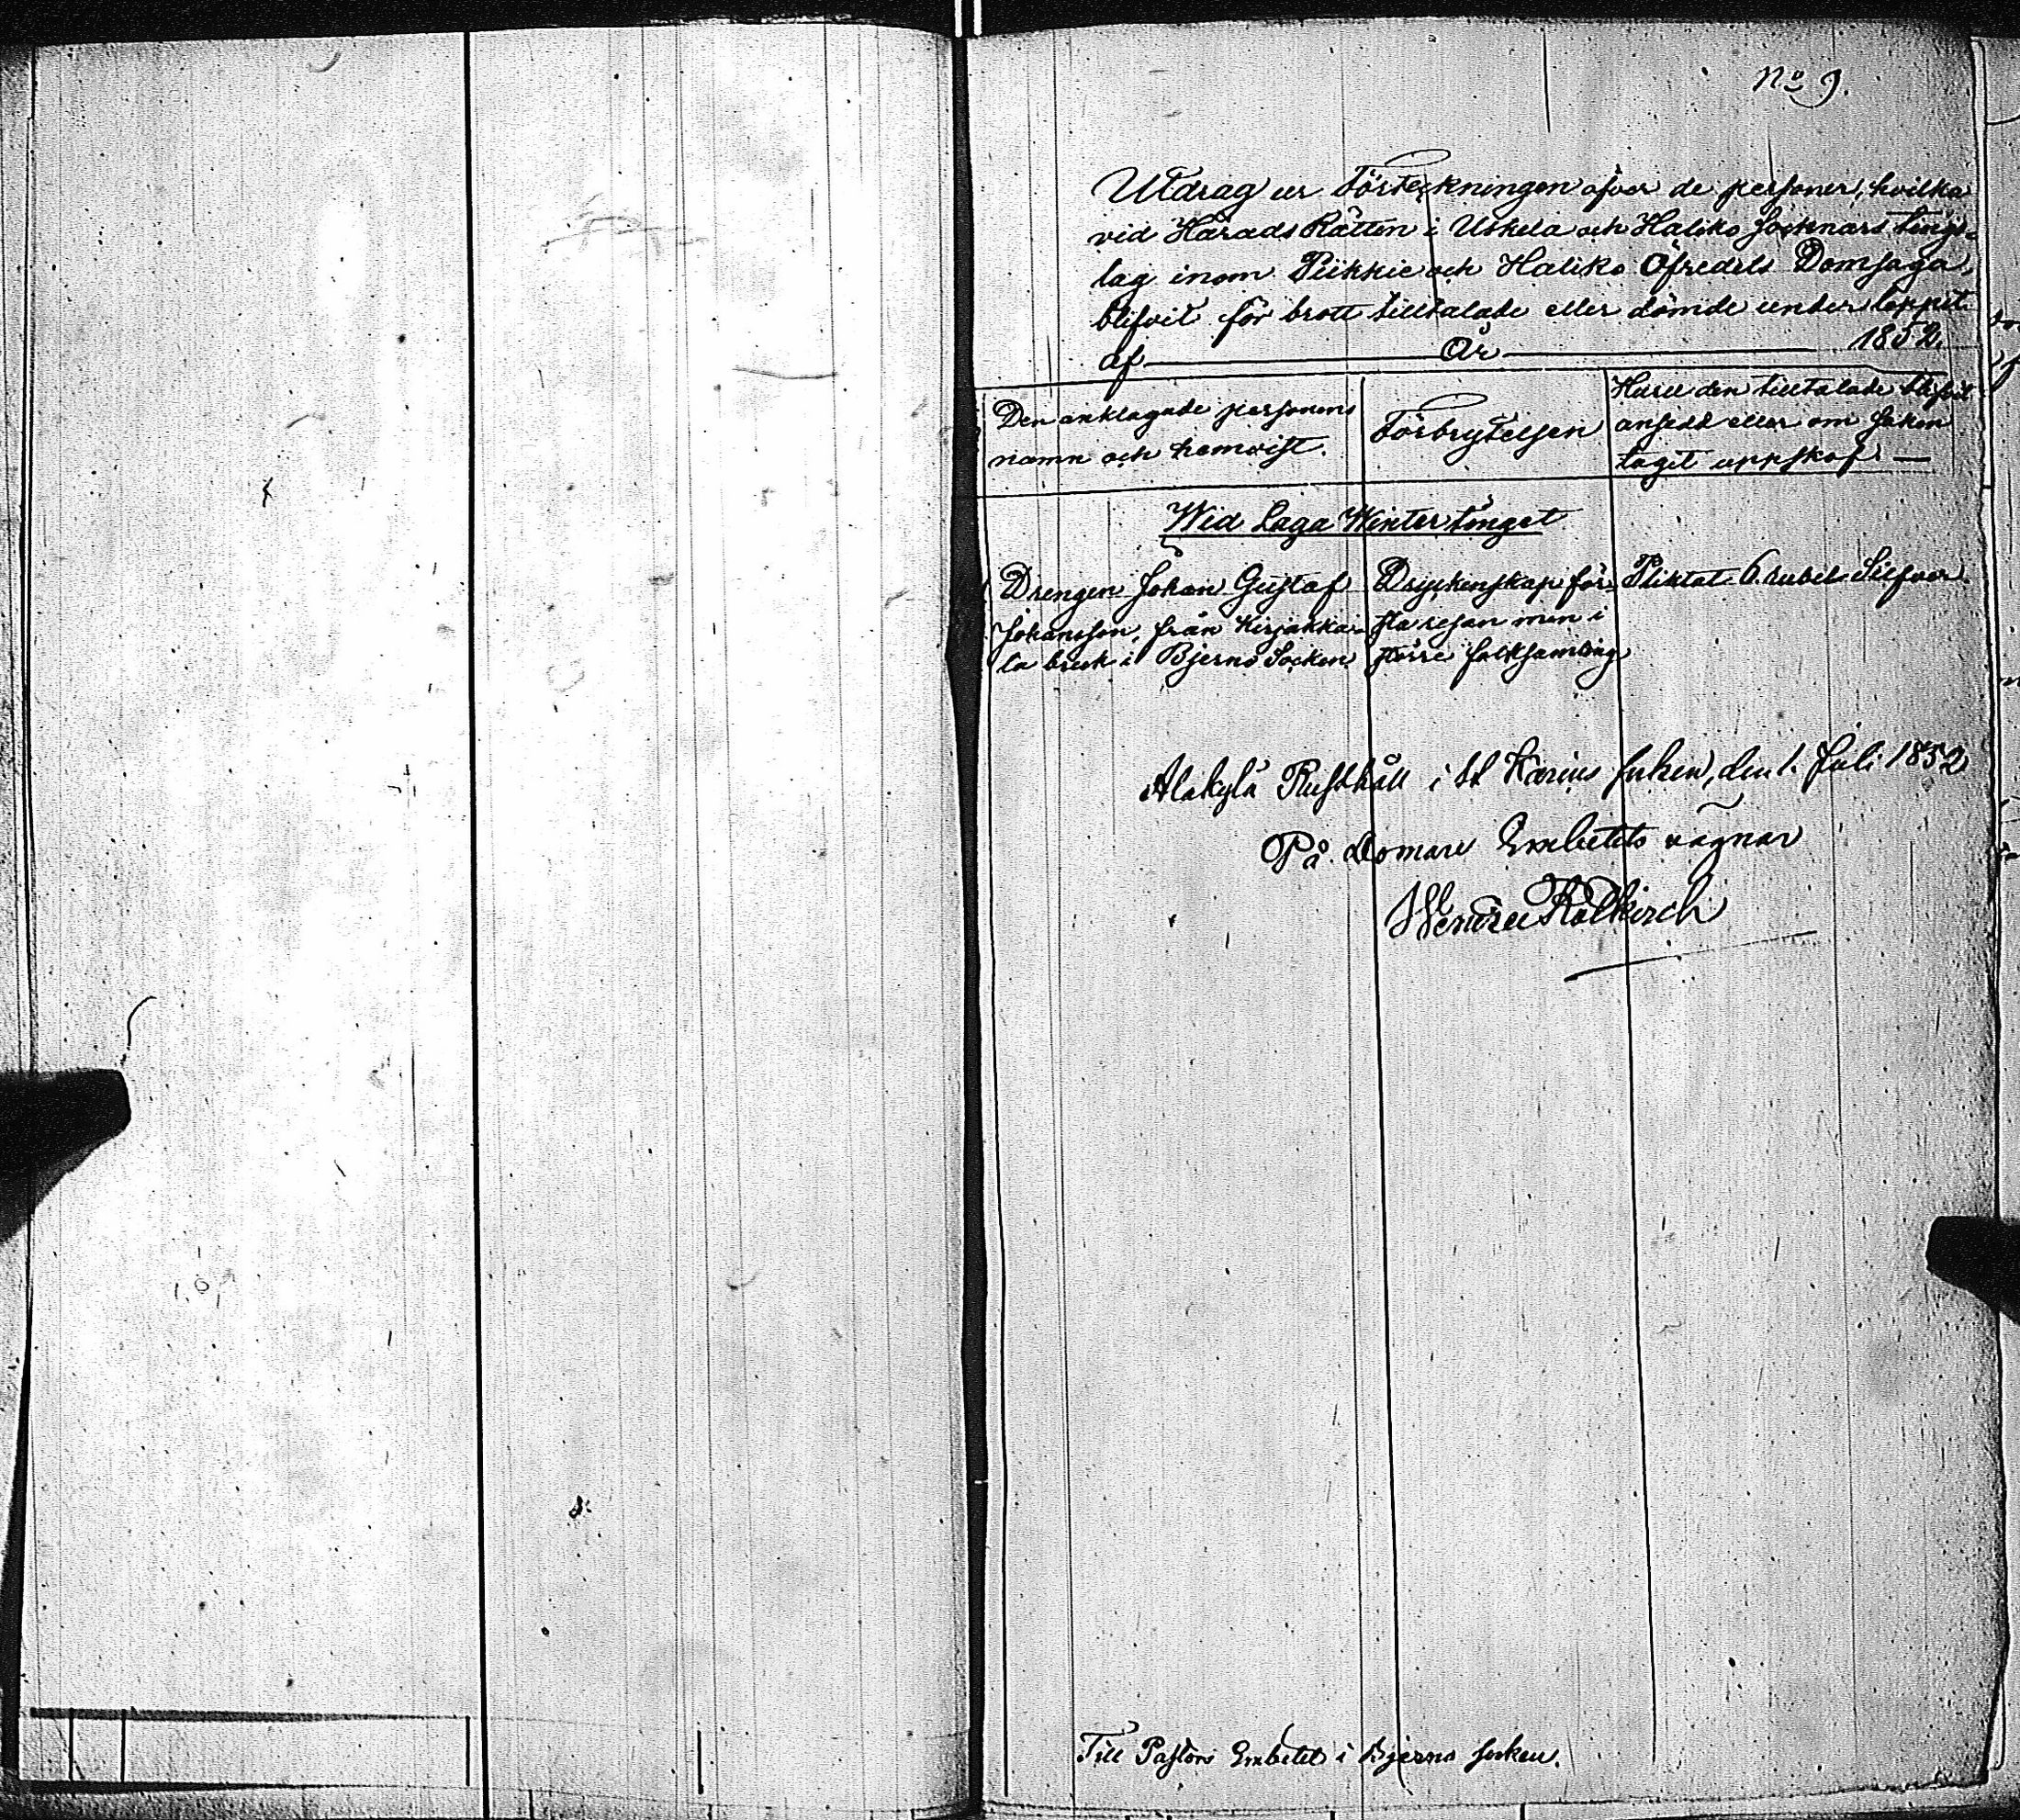 No 9.
Utdrag ur Förteckningen öfver de personer, hvilka
vid Härads Rätten i Uskela och Haliko Socknars tings-
lag inom Piikkie och Haliko Öfredels Domsaga,
blifvit för brott tilltalade eller dömde under loppet
af År 1852.
Den anklagade personens
namn och hemvist.
Förbrytelsen
Huru den tilltalade blifvit
ansedd eller om saken
taget uppskof.
Wid Laga Wintertinget
Drengen Johan Gustaf
Johansson, från Kirjakka-
la bruk i Bjerno Socken
Dryckenskap för-
sta resan men i
större folksamling
Pliktat 6 rubel Silfver.
Alakylä Rusthåll i St Karins socken, den 1. Juli 1852
På Domare Embetets vägnar
Till Pastors Embetet i Bjerno socken.